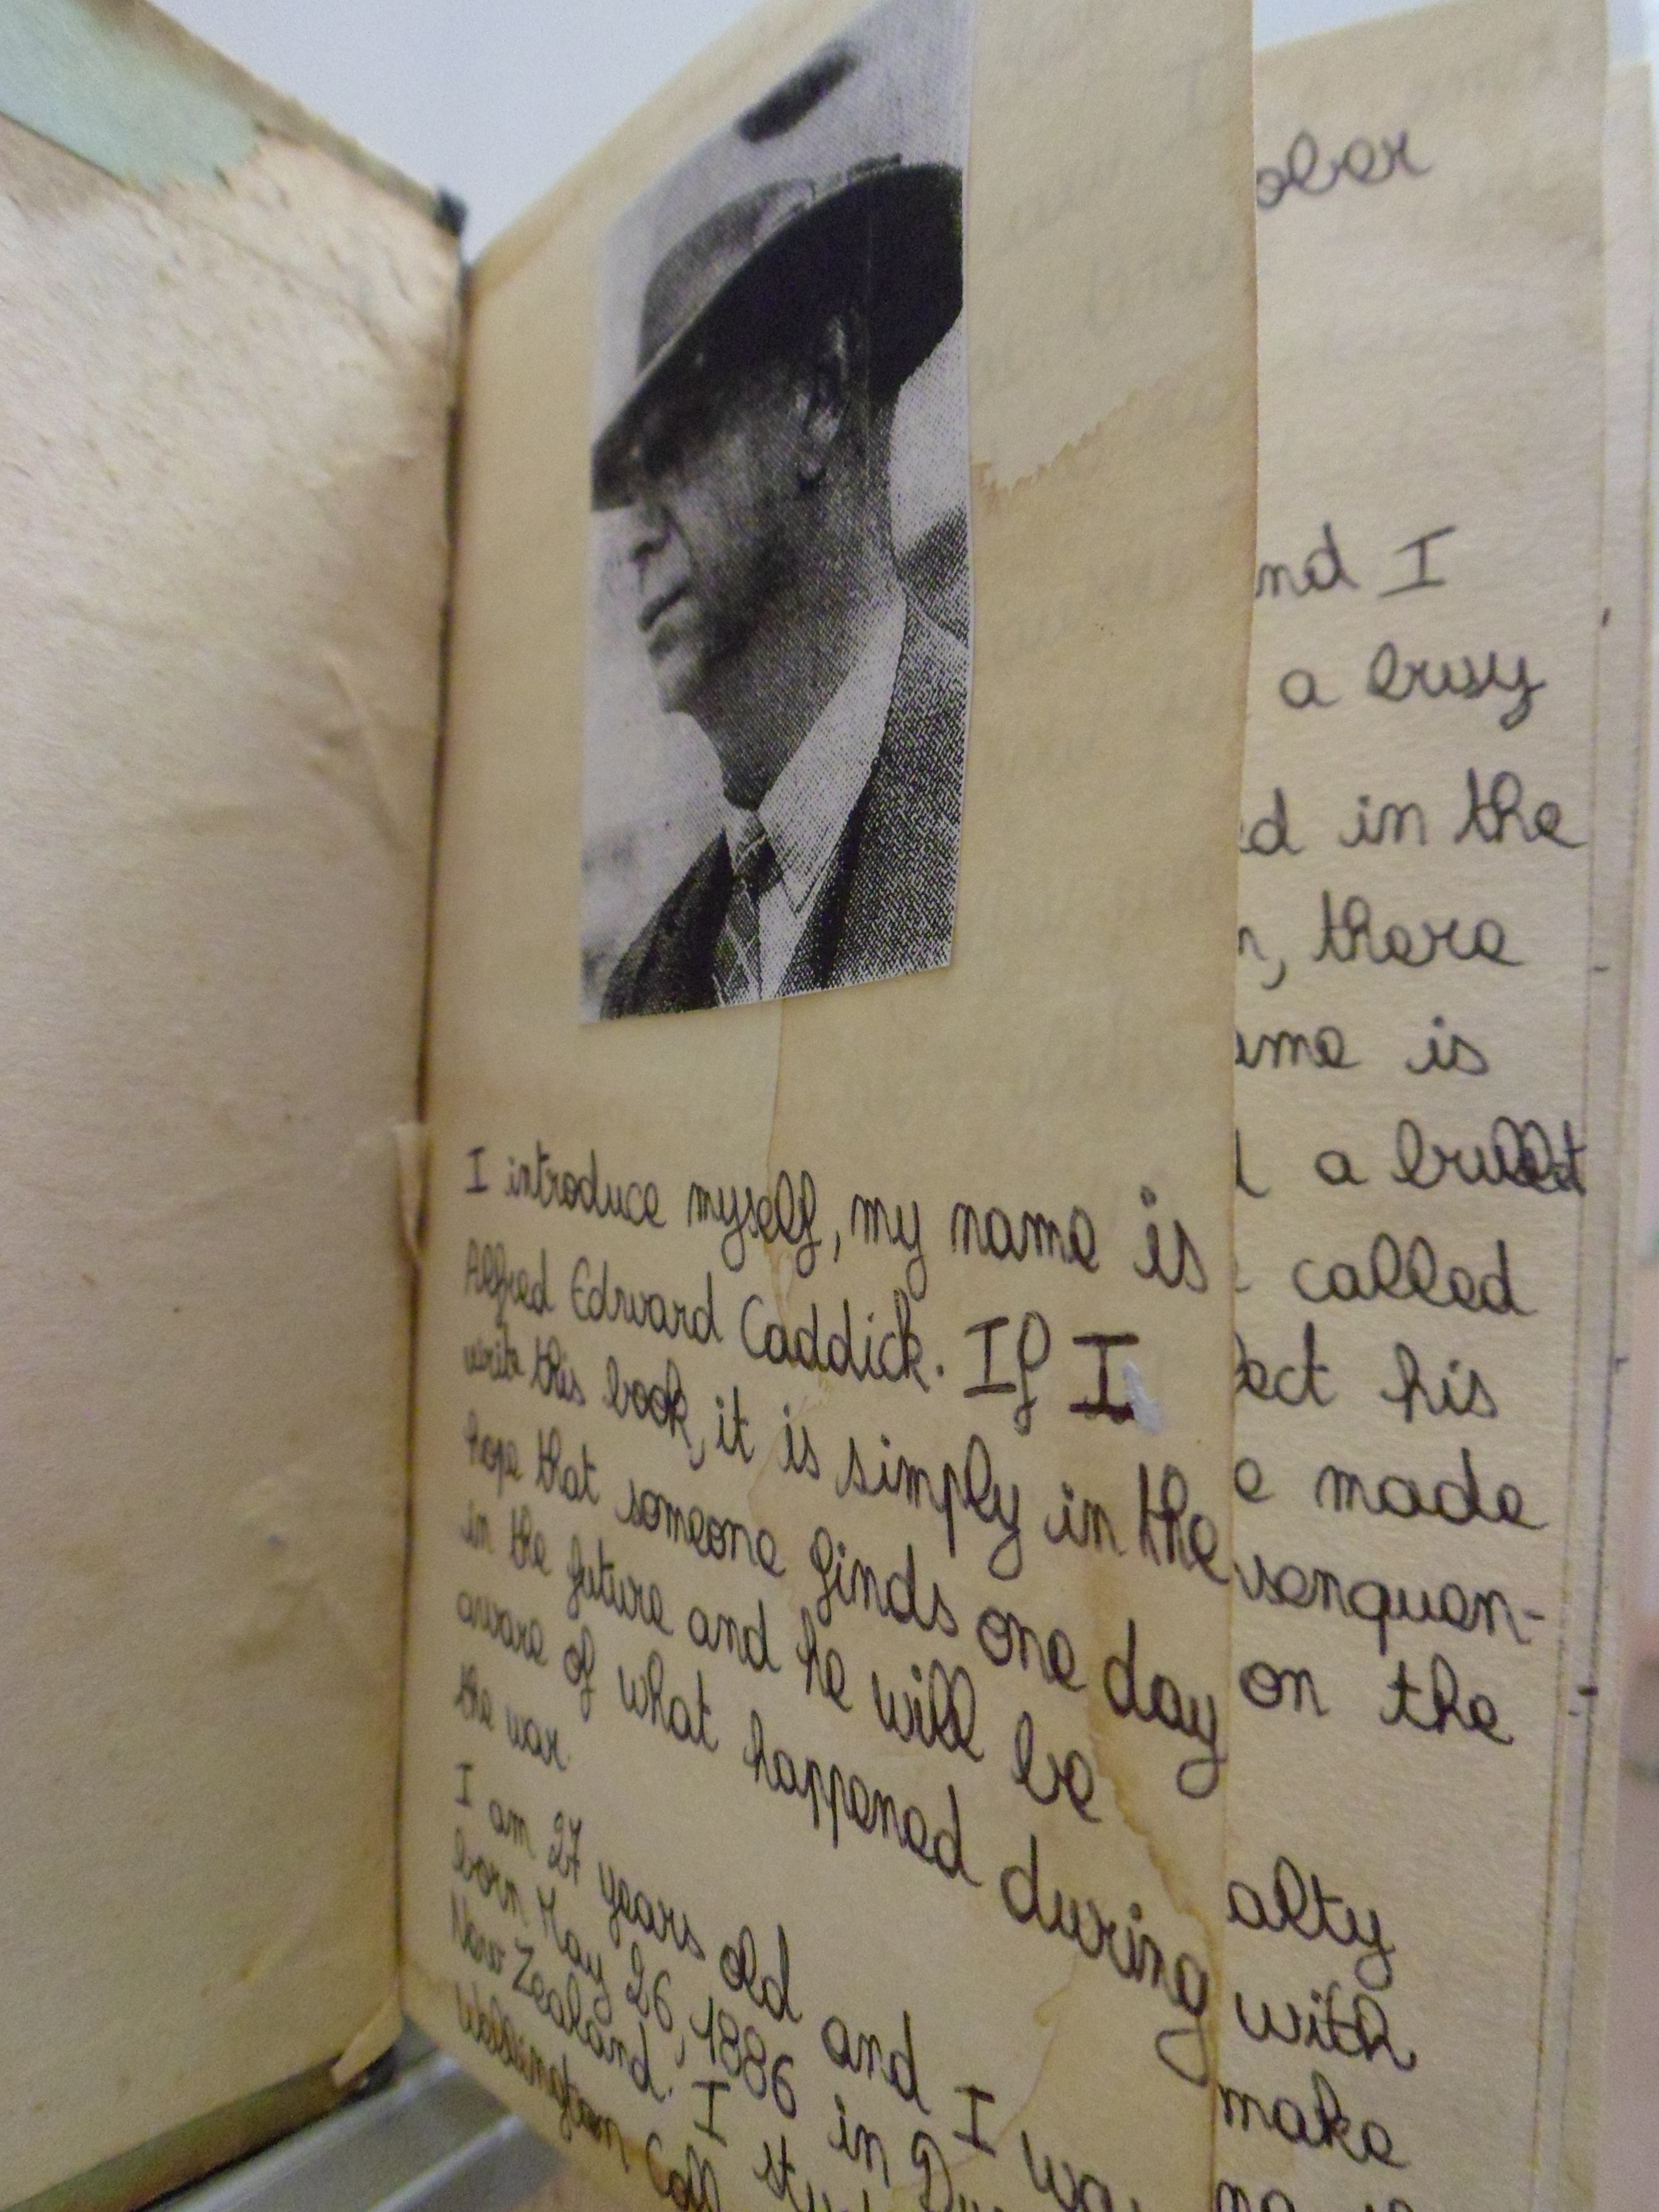 I introduce myself, my name is
Alfred Edward Caddick. If I
write this book, it is simply in the
hope that someone finds one day
in the future and he will be
aware of what happened during
the war.
I am 27 years old and I
born May 26, 1886 in
New Zealand. I
Wellington
ober
nd I
a busy
ed in the
n, there
ame is
a bullet
called
ect his
e made
senquen-
on the
alty
with
make